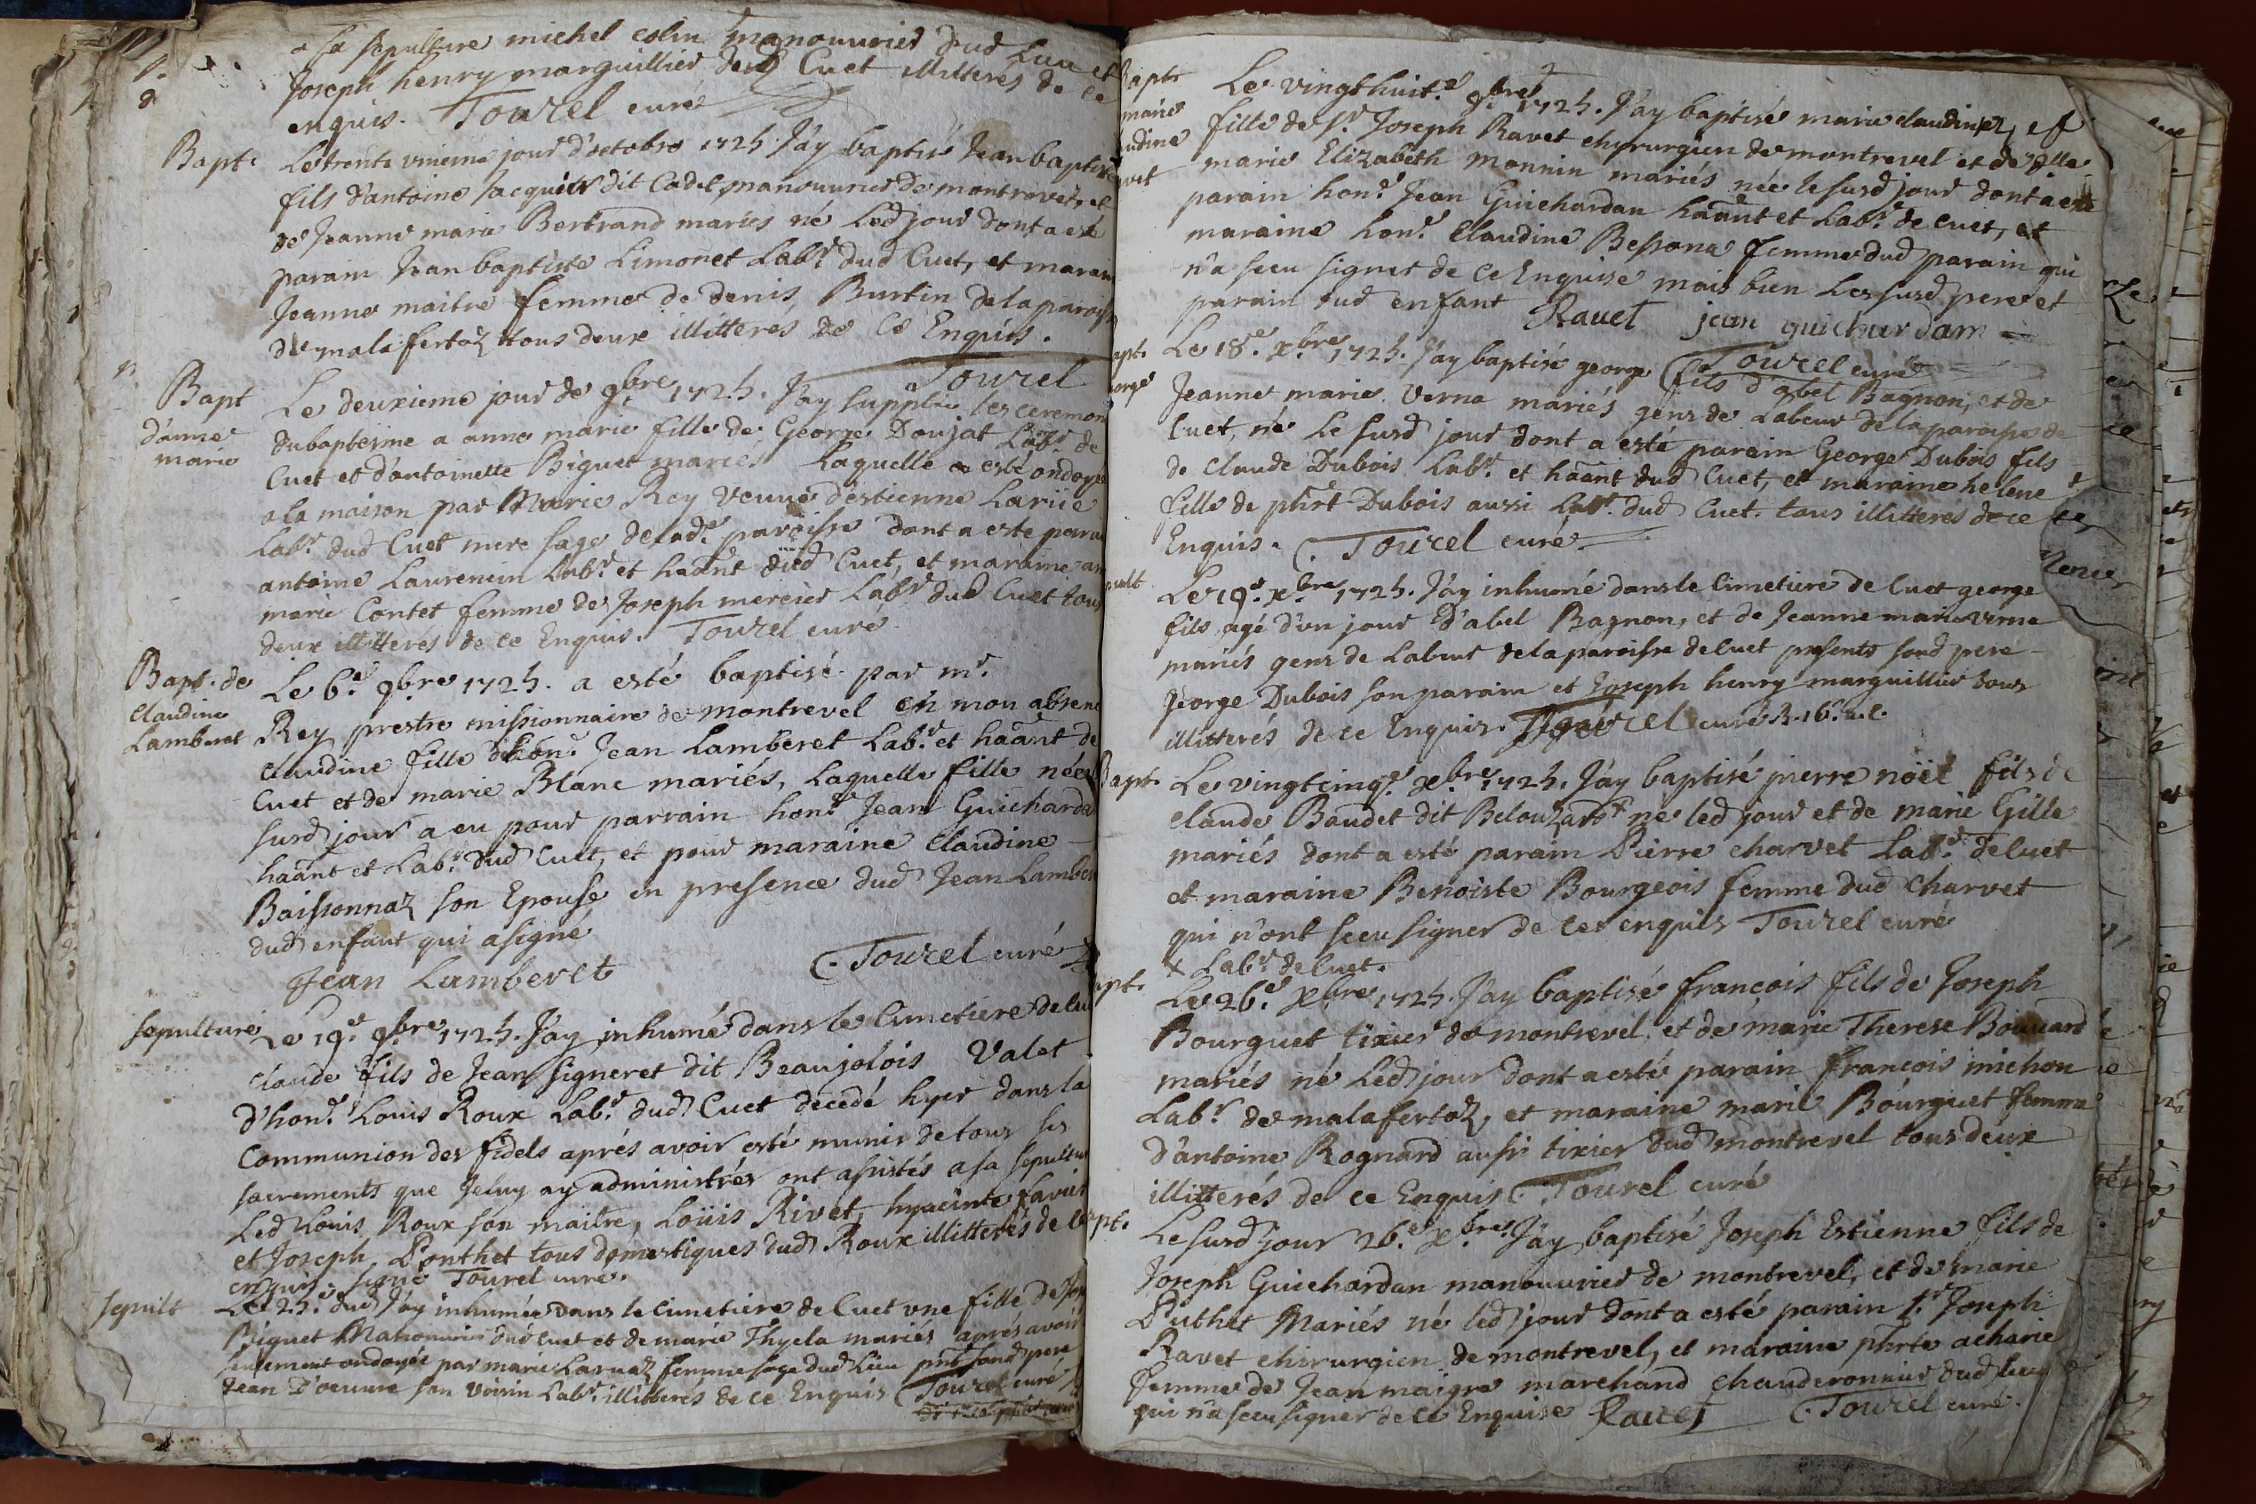 a sa sepulture michel colin manouvrier dud lieu et
Joseph henry marguillier dud Cuet illiteres de ce
enquis. Tourel curé
Bapt. Le trente unieme jour d'octobre 1725 J'ay baptisé Jean baptiste
fils d'antoine Jacquier dit Cadet manouvrier de montrevel et
de Jeanne marie Bertrand mariés né led jour dont a esté
parain Jean baptiste Limonet Labr dud Cuet, et maraine
Jeanne maitre femme de denis Burtin de la paroisse
de malafertaz tous deux illitteres de ce Enquis.
Tourel
Bapt
d'anne
marie
Le deuxieme jour de 9bre 1725. J'ay supplée les ceremon
du baptesme a anne marie fille de George Doujat Labr de
Cuet et d'antoinette Biguet mariés Laquelle a esté ondoyée
a la maison par Marie Rey veuve d'estienne Lariie
Labr dud Cuet mere sage de lade paroisse dont a este parain
antoine Laurencin Labr et haant dud Cuet, et maraine an
marie Contet femme de Joseph mercier Labr dud Cuet tous
deux illitteres de ce Enquis. Tourel curé
Bapt. de
Claudine
Lamberet
Le 6e 9bre 1725. a esté baptisé par mr
Rey prestre missionnaire de montrevel en mon absen
Claudine fille d'hon. Jean Lamberet Labr et haant de
Cuet et de marie Blanc mariés, Laquelle fille née
susd jour a eu pour parrain hon. Jean Guicharda
haant et Labr dud Cuet, et pour maraine Claudine
Baissonnaz son Epouse en presence dud Jean Lambe
dud enfant qui a signé
Jean Lamberet C. Tourel curé
sepulture Le 19e 9bre 1725. J'ay inhumé dans le Cimetiere de Cu
Claude fils de Jean Signeret dit Beaujolois Valet
d'hon. Louis Roux Labr dud Cuet decedé hyer dans la
Communion des fidels aprés avoir esté munir de tous ses
sacrements que Je luy ay administrés ont assistés a sa sepultu
Led Louis Roux son maitre, Loüis Rivet, hyacinte favier
et Joseph Ponthet tous domestiques dud Roux illitterés de ce
enquis. signé Tourel curé.
sepult Le 25e dud J'ay inhumée dans le cimetiere de Cuet une fille de
Biguet Manouvrier dud cuet et de marie Thyela mariés aprés avoir
seulement ondoyée par marie Laruaz femme sage dud lieu pnt sond pere
Jean D'oeuvre son voisin Labr illitteres de ce Enquis C Tourel curé
Bapt
marie
udine
vet
Le vingthuite 9bre 1725. J'ay baptisé marie claudine,
fille de Sr Joseph Ravet chyrurgien de montrevel et de dlle
marie Elizabeth Monnin mariés née le susd jour dont a esté
parain hon. Jean Guichardan haant et Labr de Cuet, et
maraine hon. Claudine Bessona femme dud parain qui
n'a sceu signer de ce Enquise mais bien les susd pere et
parain dud enfant Ravet jean guichardam
C Tourel curé
apt.
orge
Le 18e xbre 1725. J'ay baptisé george fils d'abel Bagnon, et de
Jeanne marie Verna mariés gens de Labeur de la paroisse de
Cuet, né le susd jour dont a esté parain George Dubois fils
de Claude Dubois Labr et haant dud Cuet, et maraine helene
fille de phrt Dubois aussi Labr dud Cuet. tous illitteres de ce
Enquis. C. Tourel curé
ult Le 19e xbre 1725. J'ay inhumé dans le Cimetiere de Cuet george
fils agé d'un jour D'abel Bagnon, et de Jeanne marie verne
mariés gens de Labeur de la paroisse de Cuet presents sond pere
George Dubois son parain et Joseph henry marguillier tous
illitterés de ce Enquis. Tourel curé
Bapt. Le vingtcinqe xbre 1725. J'ay baptisé pierre noël fils de
Claude Baudet dit Belouzard x né led jour et de marie Gille
mariés dont a esté parain Pierre charvet Labr de Cuet
et maraine Benoiste Bourgeois femme dud Charvet
qui n'ont sceu signer de ce enquis Tourel curé
x Labr de Cuet.
apt. Le 26e xbre 1725. J'ay baptisé francois fils de Joseph
Bourguet tixier de montrevel et de marie Therese Bouuard
mariés né led jour dont a esté parain francois michon
Labr de malafertaz, et maraine marie Bourguet femme
d'antoine Rognard aussi tixier dud montrevel tous deux
illitterés de ce Enquis C. Tourel curé
pt. Le susd jour 26e xbre J'ay baptisé Joseph Estienne fils de
Joseph Guichardan manouvrier de montrevel, et de marie
Puthet Mariés né led jour dont a esté parain Sr Joseph
Ravet chirurgien de montrevel, et maraine phrte acharie
femme de Jean maigre marchand chauderonnier dud lieu
qui n'a sceu signer de ce Enquise Ravet C. Tourel curé.